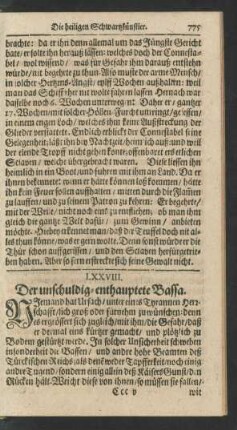 Die heiligen Schwartzkünstler. 775
brachte: da er ihn denn allemal um das Jüngste Gericht
hatt / er solte ihn heraus lassen: welches doch der Connesta-
bel / wol wissend / was für Gefahr ihm daraus entstehen
würde / nit begehrte zu thun Also muste der arme Mensch
in solcher Hertzens-Angst / Wochen aushalten: weil
man das Schiff
daselbs noch 6. Wochen unterweg Daher er / gantzer
7. Wochen mit solcher Hertzen- Furcht umringt / gesessen /
in einem engen Loch / welches ihm keine Ausstreckung der
Glieder verstattete. Endlich erblickt der Connestabel seine
Gelegenheit: läßt ihn bey Nachtzeit heraus / weil
der elende Tropff nicht gehen konte / offenbar etlichen
Sclaven / welche übergebracht waren. Diese liessen ihn
heimlich in ein Boot / und fuhren mit ihm an Land. Da er
ihnen bekennete: wenn er hätte können loskommen / hätte
ihn kein Feuer sollen aufhalten / mitten durch die Flamen
zu lauffen / und zu seinem Patron zu kehren: Er begehrete /
mit der Weise / nicht noch eins zu entfliehen / ob man ihm
gleich die gantze Welt dafür / zum Gewinn / anbieten
möchte. Hiebey erkennet man / daß der Teuffel doch nit al-
les thun könne / was er gern wolte. Denn sonst würde er die
Thür schon auffgerissen / und den Sclaven herfürgezo-
gen haben. Aber so fern erstreckte sich seine Gewalt nicht.
LXXVIII.
Der unschuldig-enthauptete Bassa.
NIemand hat Ursach / unter eines Tyrannen Herr-
schafft / sich groß oder fürnehm zu wünschen; denn
es ergrösset sich zugleich / mit ihm / die Gefahr / daß
er dermal eins kürtzer gemacht / und plötzlich zu
Bodem gestürtzt werde. In solcher Unsicherheit schweben
insonderheit die Bassen / und andre hohe Beamten deß
Türckischen Reichs: als denen weder Tapfferkeit / noch einig
andre Tugend / sondern einig allein deß Käisers Gunst / den
Rücken hält. Weicht diese von ihnen / so müssen sie fallen /
Ccc v wit